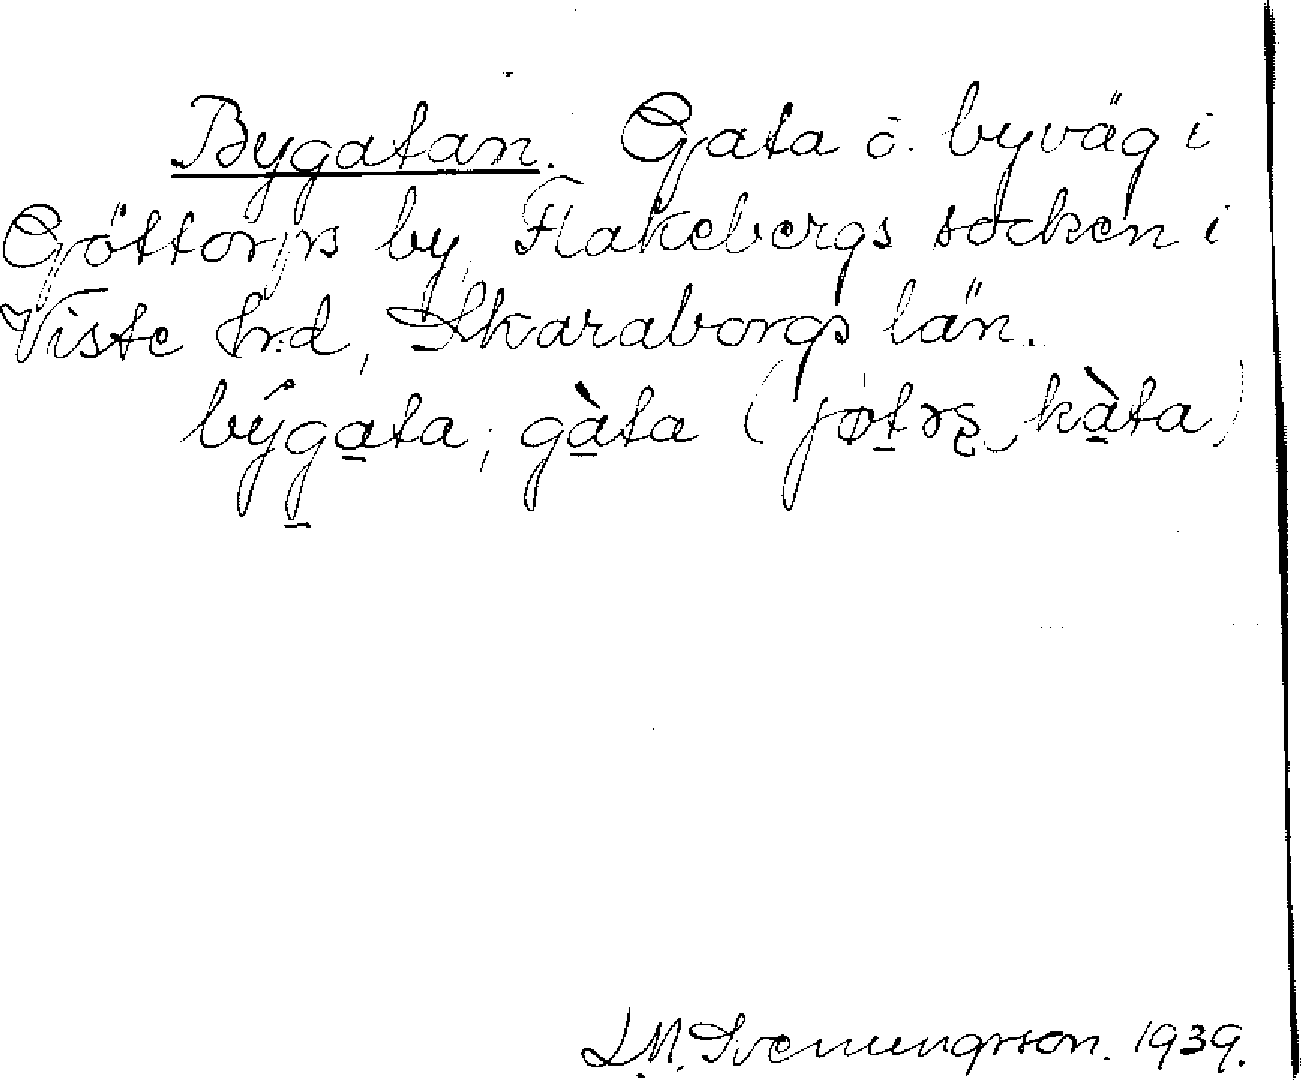 Bygatan. Gata o. byväg i
Göttorps by, Flakebergs socken i
Viste hrd, Skaraborgs län.
by̍gata, gàta (jøtrʂ kàta)
L.M. Svenungsson. 1939.